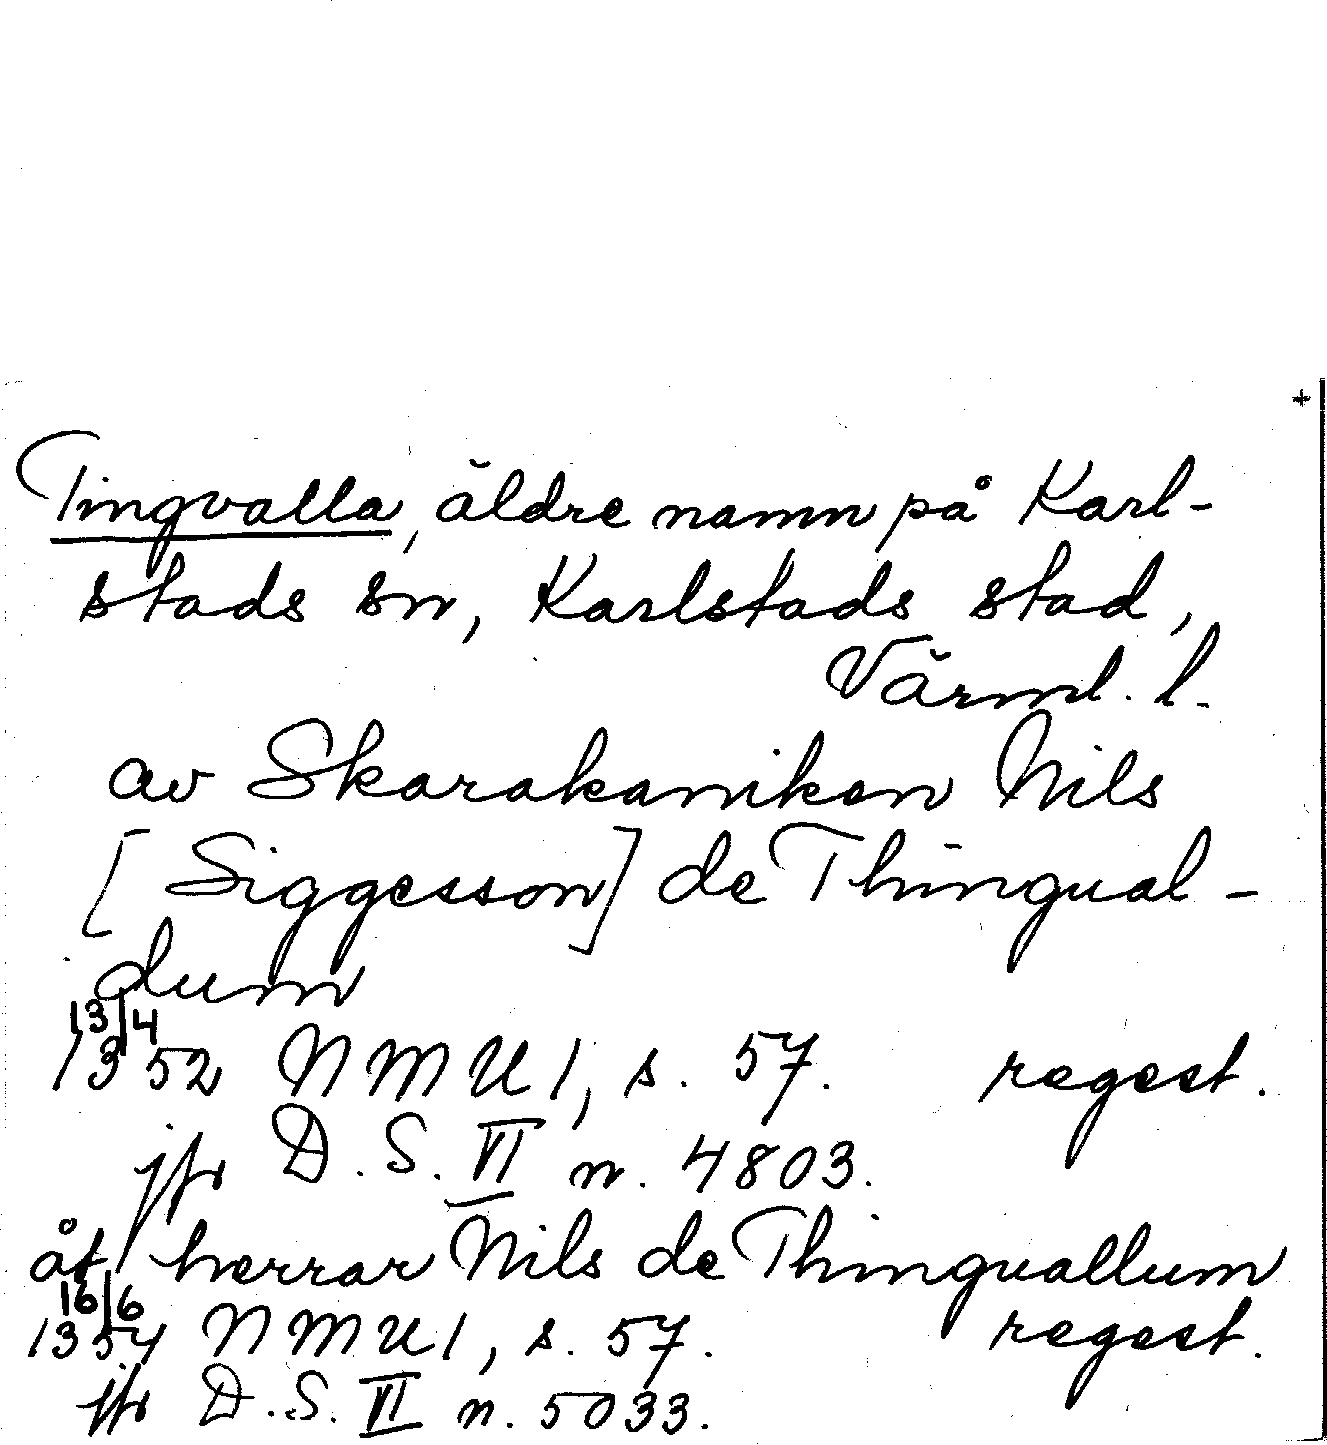 +
Tingvalla, äldre namn på Karl-
stads sn, Karlstads stad,
Värml. l.
av Skarakaniken Nils
[Siggesson] de Thingual-
dum
13/4
1352 NMU 1, s. 57. regest.
jfr D. S. VI n. 4803.
åt herrar Nils de Thinguallum
16/6
1354 NMU 1, s. 57. regest.
jfr D. S. VI n. 5033.